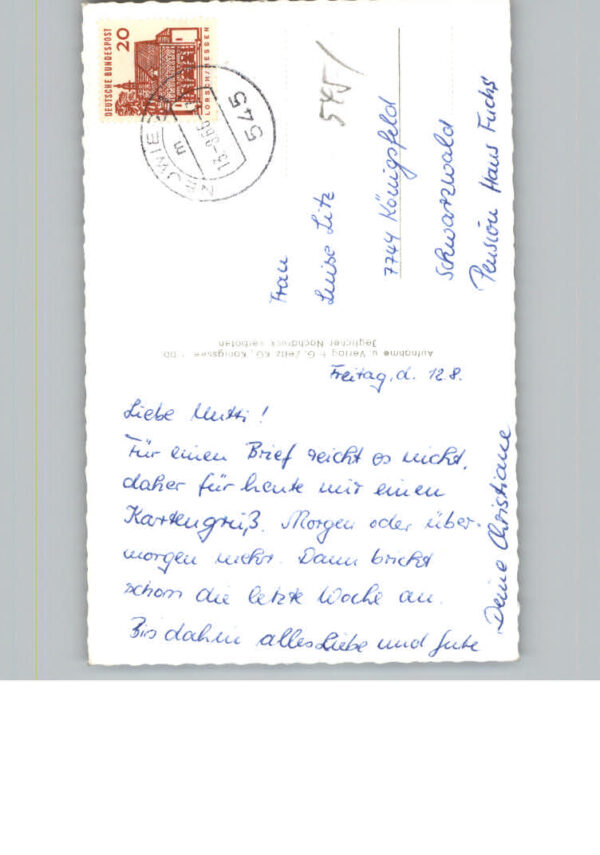 DEUTSCHE BUNDESPOST
20
LORSCH/HESSEN
NEUWIED
545
m
545/
Frau
Luise Litz
7744 Königsfeld
Schwarzwald
Pension Haus Fuchs
Aufnahme u. Verlag
KG, Königssee
Jeglicher Nachdruck verboten
Freitag, d. 12.8.
Liebe Mutti!
Für einen Brief reicht es nicht,
daher für heute mit einen
Kartengruß. Morgen oder über-
morgen mehr. Dann bricht
schon die letzte Woche an.
Bis dahin alles Liebe und Gute
Deine Christiane